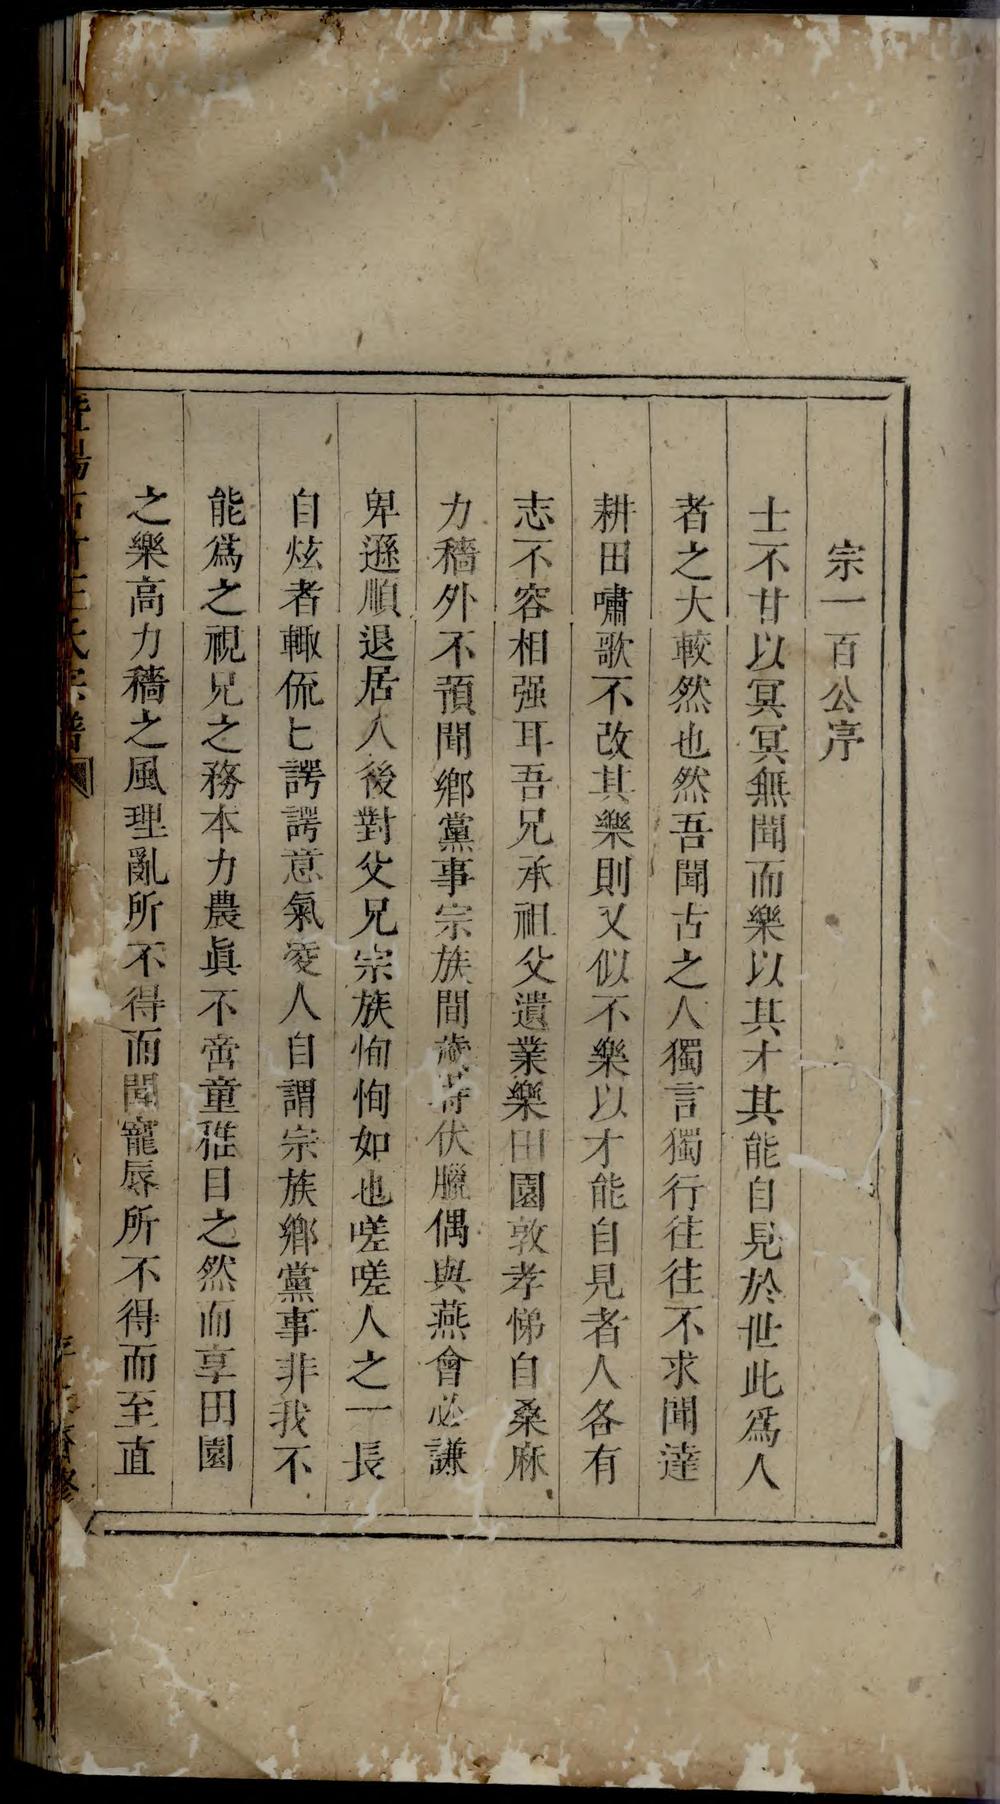 宗一百公序
士不甘以冥冥無聞而樂以其才其能自見於世此爲人
者之大較然也然吾聞古之人獨言獨行往往不求聞達
耕田嘯歌不改其樂則又似不樂以才能自見者人各有
志不容相强耳吾兄承祖父遺業樂田園敦孝悌自桑麻
力穡外不預聞鄉黨事宗族間歲時伏臘偶與燕會必謙
卑遜順退居人後對父兄宗族恂恂如也嗟嗟人之一長
自炫者輙侃匕諤諤意氣凌人自謂宗族鄉黨事非我不
能爲之視兄之務本力農眞不啻童穉目之然而享田園
之樂高力穡之風理亂所不得而聞寵辱所不得而至直
氏宗譜